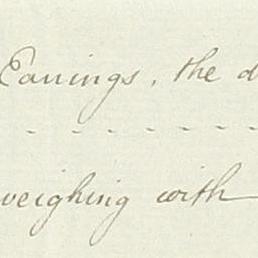 Earings, the d
- - - - - - -
weighing with